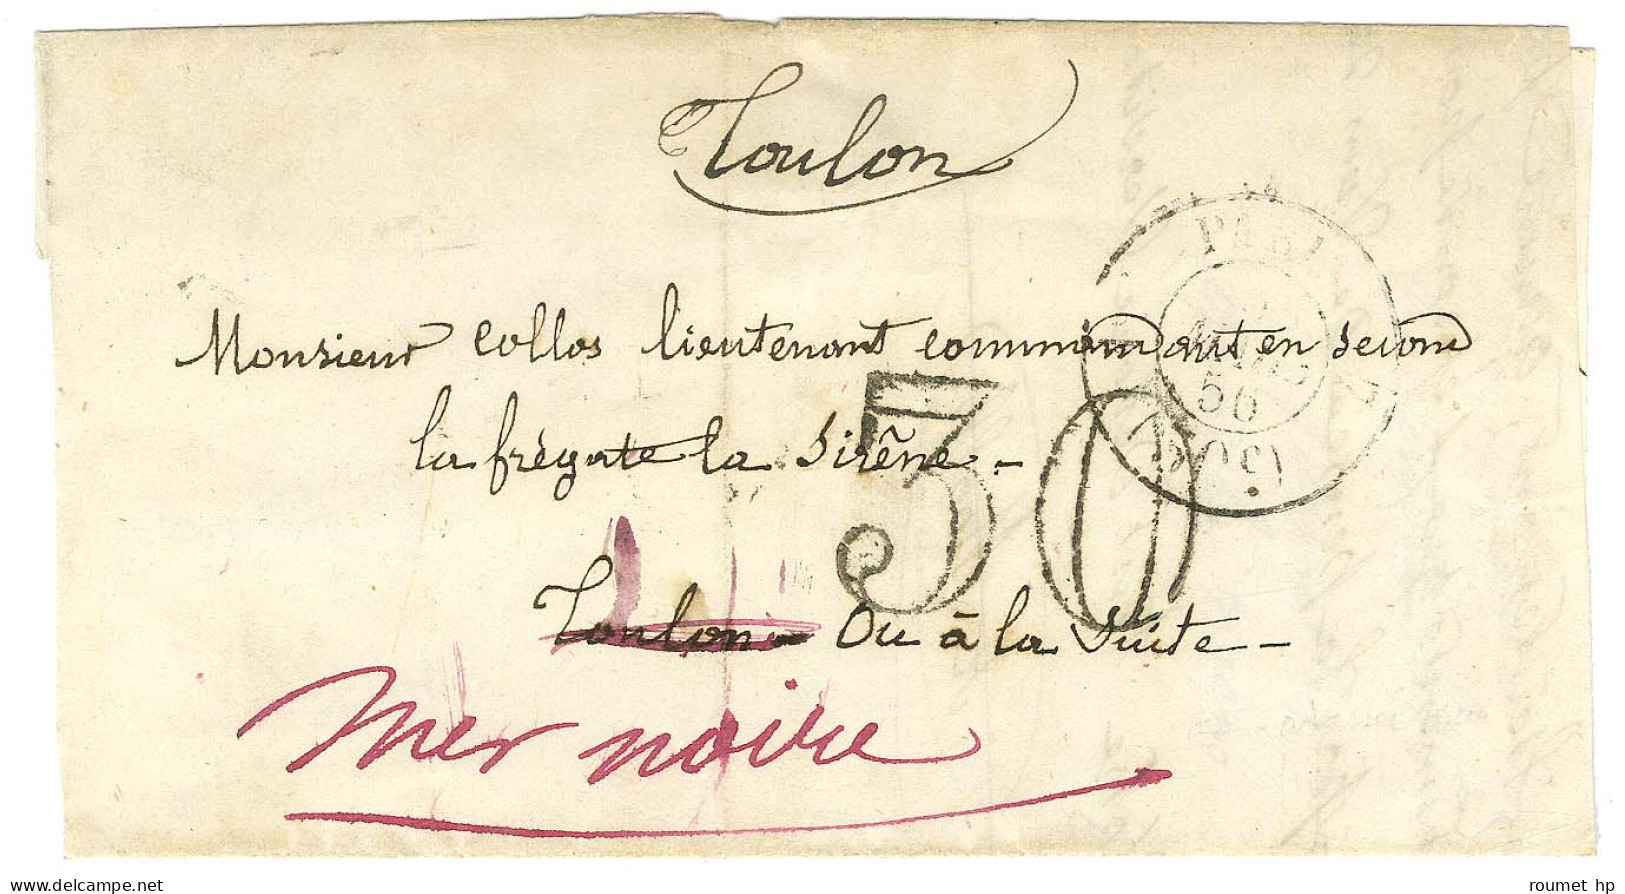 Toulon
PARIS
56
(60)
Monsieur Collos lieutenant commandant en second
la frégate la Sirène -
30
Toulon - Ou à la Suite -
mer noire
roumet hp